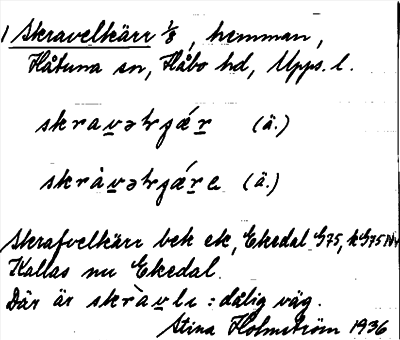 1 Skravelkärr 1/8, hemman,
Håtuna sn, Håbo hd, Upps. l.
skravəłgǽr (ä.)
skràvəłgǽra (ä.)
Skrafvelkärr bek ek, Ekedal G75,
Kallas nu Ekedal.
Där är skràvlı : dålig väg.
Stina Holmström 1936